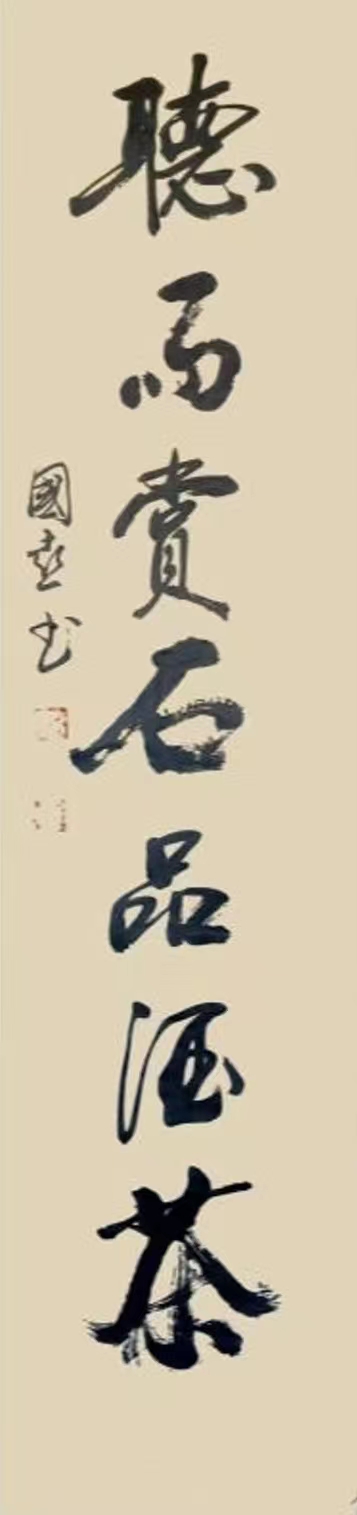 聽雨賞石品酒茶
國书